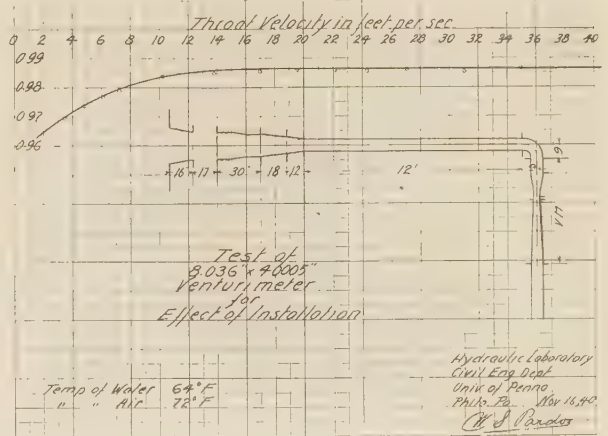 Throat Velocity in feet per sec.
0 2 4 6 8 10 12 14 16 18 20 22 24 26 28 30 32 34 36 38 40
0.99
0.98
0.97
0.96
16" 17" 30" 18" 12" 12'
6"
Test of
8.036" x 4.0005"
Venturimeter
for
Effect of Installation
Temp of Water 64° F
" " Air 72° F
Hydraulic Laboratory
Civil Eng Dept
Univ of Penna.
Phila. Pa. Nov 16, 40
W S Pardoe